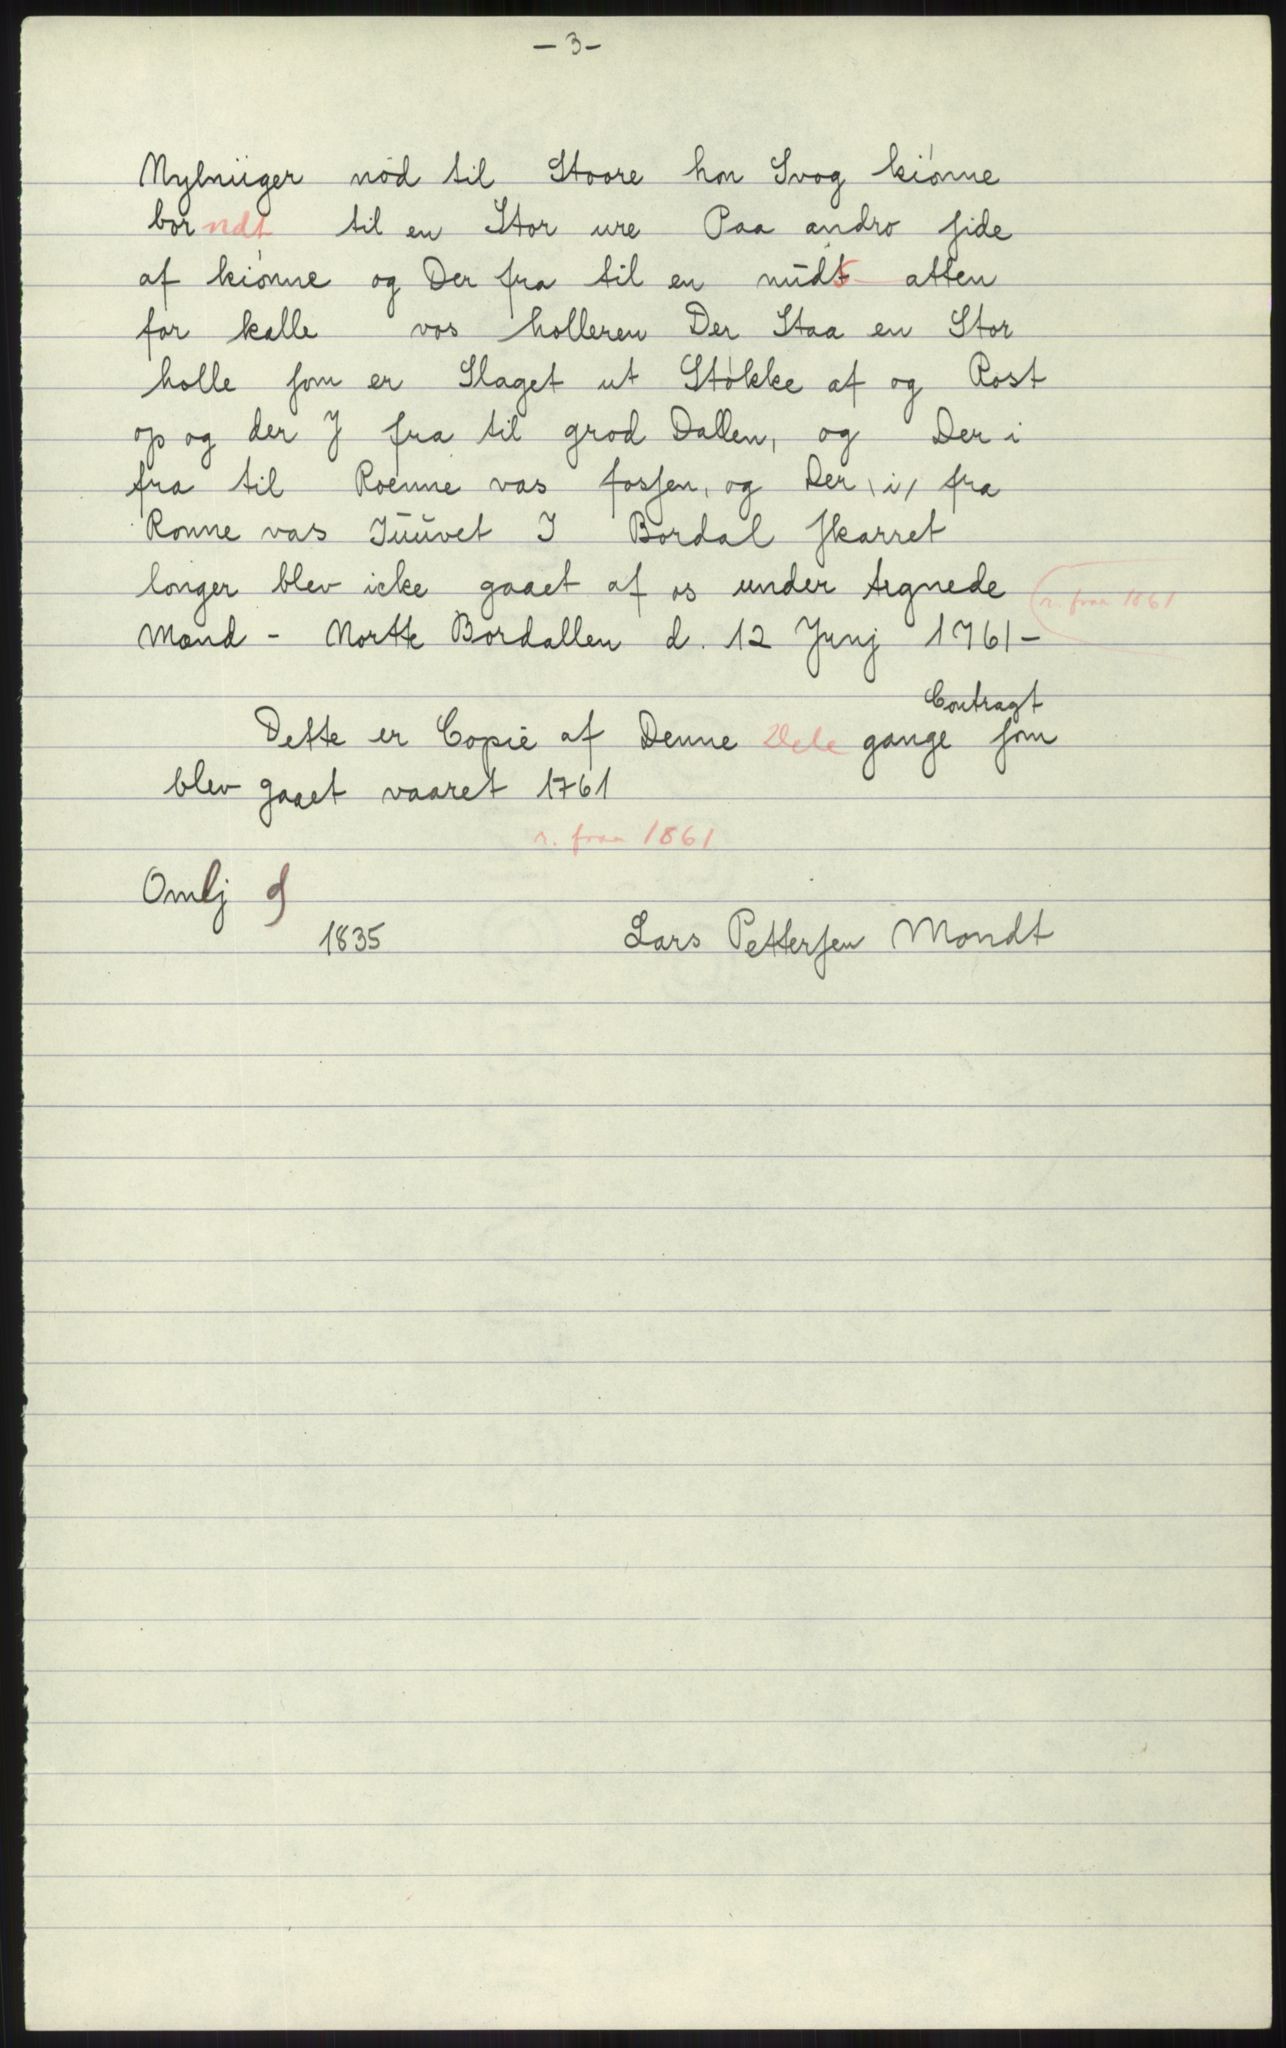 - 3 -
Nylniiger nød til Stoore hon Svog kiónne
borndt til en Stor ure Paa andro side
af kiónne og Der fra til en nūdt atten
for kalle vos holleren Der Staa en Stor
holle som er Slaget ut Stókke af og Rost
op og der J fra til grod Dallen, og Der i
fra til Roenne vas fossen, og Der, i, fra
Ronne vas Jūūvet I Bordal skarret
longer blev icke gaaet af os under tegnede
Mænd - Nortte Bordallen d. 12 Junj 1761 -
r. fraa 1861
Contragt
Dette er Copie af Denne Dele gange som
blev gaaet vaaret 1761
r. fraa 1861
Omlj
1835 Lars Pettersen Mondt